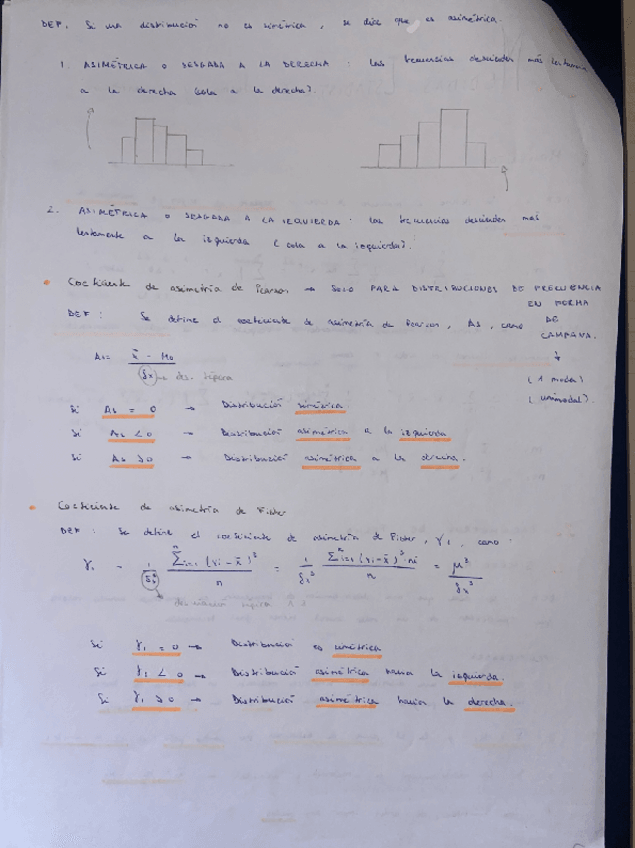 DEF. Si una distribución no es simétrica, se dice que es asimétrica.
1. ASIMÉTRICA O SESGADA A LA DERECHA: las frecuencias descienden más lentamente
a la derecha (cola a la derecha).
2. ASIMÉTRICA O SESGADA A LA IZQUIERDA: las frecuencias descienden más
lentamente a la izquierda (cola a la izquierda).
• Coeficiente de asimetría de Pearson → SOLO PARA DISTRIBUCIONES DE FRECUENCIA
EN FORMA
DE
CAMPANA.
↓
(1 moda)
(unimodal).
DEF: Se define el coeficiente de asimetría de Pearson, As, como
As = (x̄ - Mo) / Sx → des. típica
Si As = 0 → Distribución simétrica
Si As < 0 → Distribución asimétrica a la izquierda
Si As > 0 → Distribución asimétrica a la derecha.
• Coeficiente de asimetría de Fisher
DEF: Se define el coeficiente de asimetría de Fisher, γ₁, como:
γ₁ = 1/Sx³ · Σⁿᵢ₌₁ (xi - x̄)³ / n = 1/Sx³ · Σⁿᵢ₌₁ (xi - x̄)³ · ni / n = μ³/Sx³
desviación típica
Si γ₁ = 0 → Distribución es simétrica
Si γ₁ < 0 → Distribución asimétrica hacia la izquierda.
Si γ₁ > 0 → Distribución asimétrica hacia la derecha.